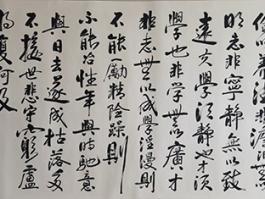 儉以養德非澹泊無以
明志非寧靜無以致
遠夫學須靜也才須
學也非學無以廣才
非志無以成學淫慢則
不能勵精險躁則
不能冶性年與時馳意
與日去遂成枯落多
不接世悲守窮廬
將復何及